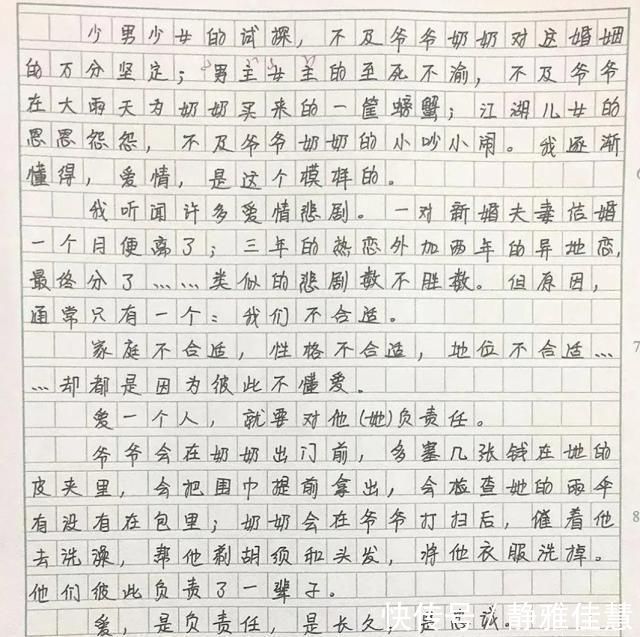 少男少女的试探，不及爷爷奶奶对这婚姻
的万分坚定；男主女主的至死不渝，不及爷爷
在大雨天为奶奶买来的一筐螃蟹；江湖儿女的
恩恩怨怨，不及爷爷奶奶的小吵小闹。我逐渐
懂得，爱情，是这个模样的。
我听闻许多爱情悲剧。一对新婚夫妻结婚
一个月便离了；三年的热恋外加两年的异地恋，
最终分了……类似的悲剧数不胜数。但原因，
通常只有一个：我们不合适。
家庭不合适，性格不合适，地位不合适…
…却都是因为彼此不懂爱。
爱一个人，就要对他(她)负责任。
爷爷会在奶奶出门前，多塞几张钱在她的
皮夹里，会把围巾提前拿出，会检查她的雨伞
有没有在包里；奶奶会在爷爷打扫后，催着他
去洗澡，帮他剃胡须和头发，将他衣服洗掉。
他们彼此负责了一辈子。
爱，是负责任，是长久，
快传号／静雅佳慧
7
8